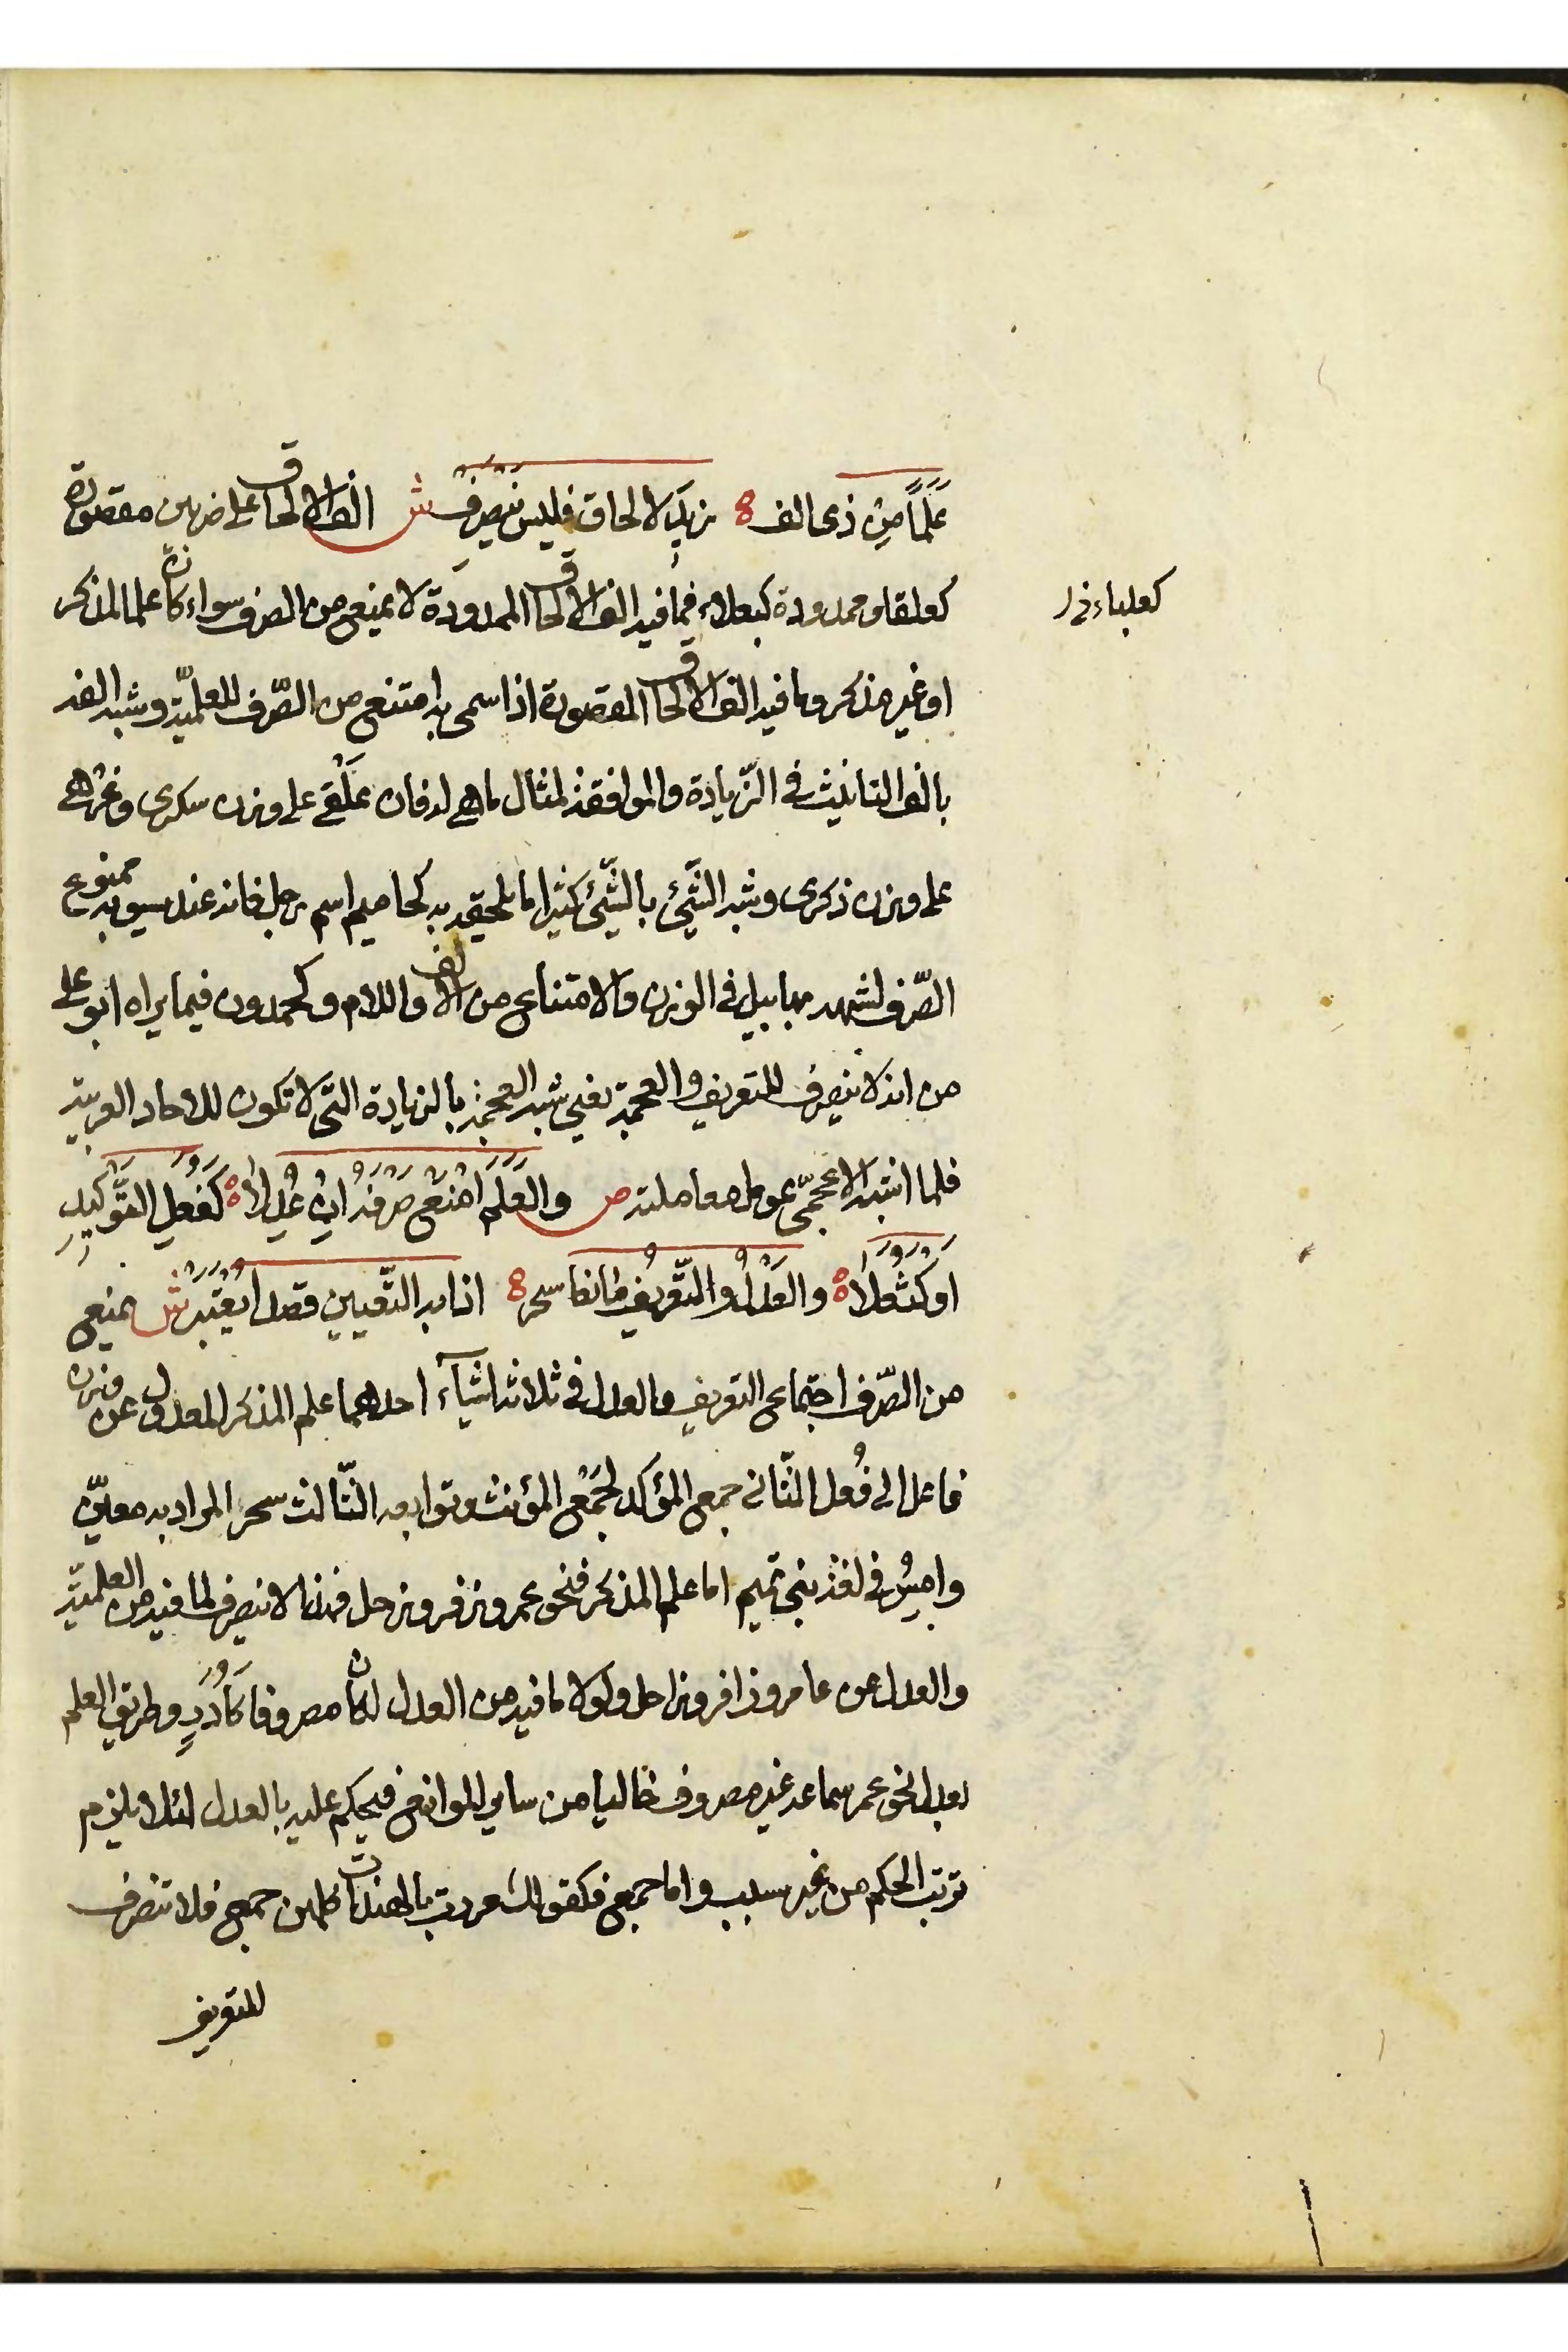 عَلَمًا مِن ذى الف زيدَ لالحاق فليس ينصرف ش الف الالحاق على ضربين مقصورة
كعلقا وممدودة كبعلاء فما فيه الف الالحاق الممدودة لا يمنع من الصرف سواء كان علما لمذكر
كعلباء
او غير مذكر وما فيه الف الالحاق المقصورة اذا سمى به امتنع من الصّرف للعلميّة وشبه الفه
بالف التانيث في الزّيادة والموافقة لمثال ما هى له فان عَلْقى على وزن سكرى وعزهى
على وزن ذكرى وشبه الشّئ بالشّئ كثيرا ما يلحقه به كحاميم اسم رجل فانه عند سيبويه ممنوع
الصّرف لشبهه بهابيل فى الوزن والامتناع من الالف واللام وكحمدون فيما يراه ابو على
من انه لا ينصرف للتعريف والعجمة يعنى شبه العجمة بالزيادة التى لا تكون للاحاد العربية
فلما اشبه الاعجمىّ عومل معاملته ص والعَلَمَ امْنَعْ صرفه اِنْ عُدِلَا كفُعَلِ التَّوْكيدِ
او كثُعَلا والعَدْلُ والتّعريفُ مانعا سحر اذا به التّعيين قصدا يُعْتَبَر ش يمنع
من الصّرف اجتماع التعريف والعدل فى ثلاثة اشيآء احدهما علم المذكر المعدول عن وزن
فاعل الى فُعل الثّانى جمع المؤكد لجَمْع المؤنث وتوابعه الثّالث سحر المراد به معيّن
وامسُ فى لغة بنى تميم اما علم المذكر فنحو عمر وزفر وزحل فهذا لا ينصرف لما فيه من العلميّة
والعدل عن عامر وزافر وزاحل ولولا ما فيه من العدل لكان مصروفا كأُدَدٍ وطريق العلم
بعدل نحو عمر سماعه غير مصروف خاليا من ساير الموانع فيحكم عليه بالعدل لئلا يلزم
ترتب الحكم من غير سبب واما جمع فكقولك مررت بالهندات كلهن جمع فلا تنصرف
للتعريف